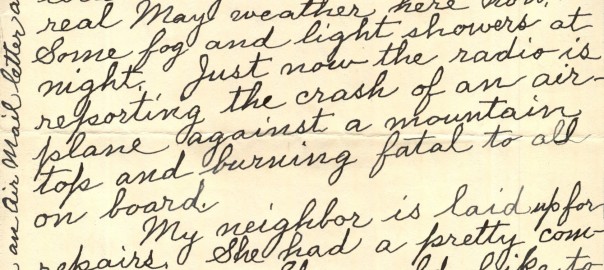 real May weather here now.
Some fog and light showers at
night. Just now the radio is
reporting the crash of an air-
plane against a mountain
top and burning fatal to all
on board.
My neighbor is laid up for
repairs. She had a pretty com-
like to
an Air Mail letter